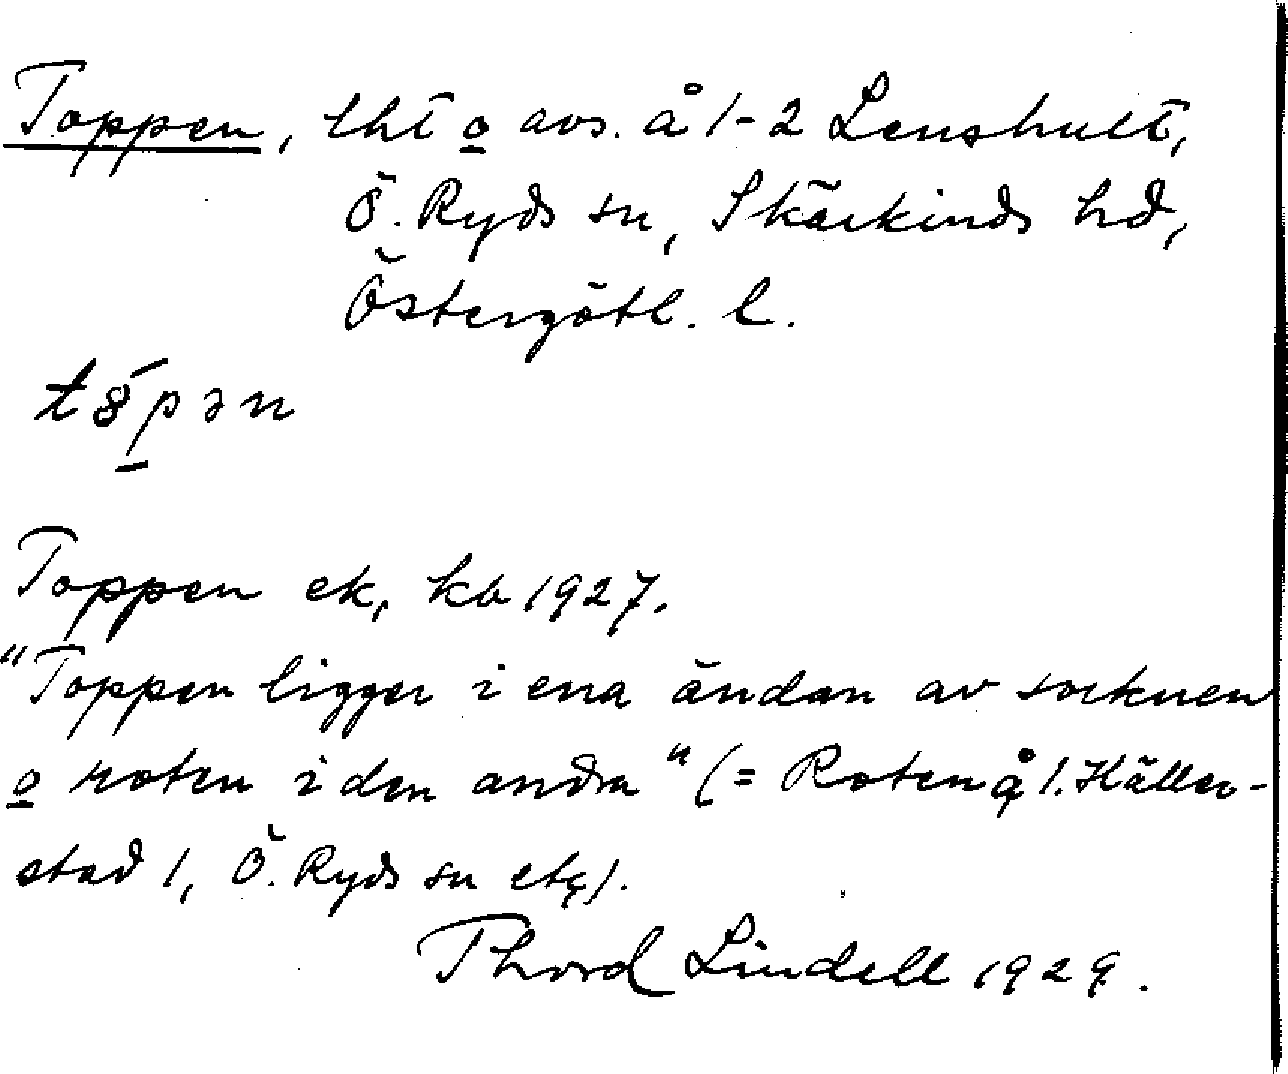 Toppen, lht o avs. å 1-2 Lenshult,
Ö. Ryds sn, Skärkinds hd,
Östergötl. l.
tȣ́pən
Toppen ek, kb 1927.
"Toppen ligger i ena ändan av socknen
o roten i den andra" (= Roten å 1. Häller-
stad 1, Ö. Ryds sn etc).
Thord Lindell 1929.